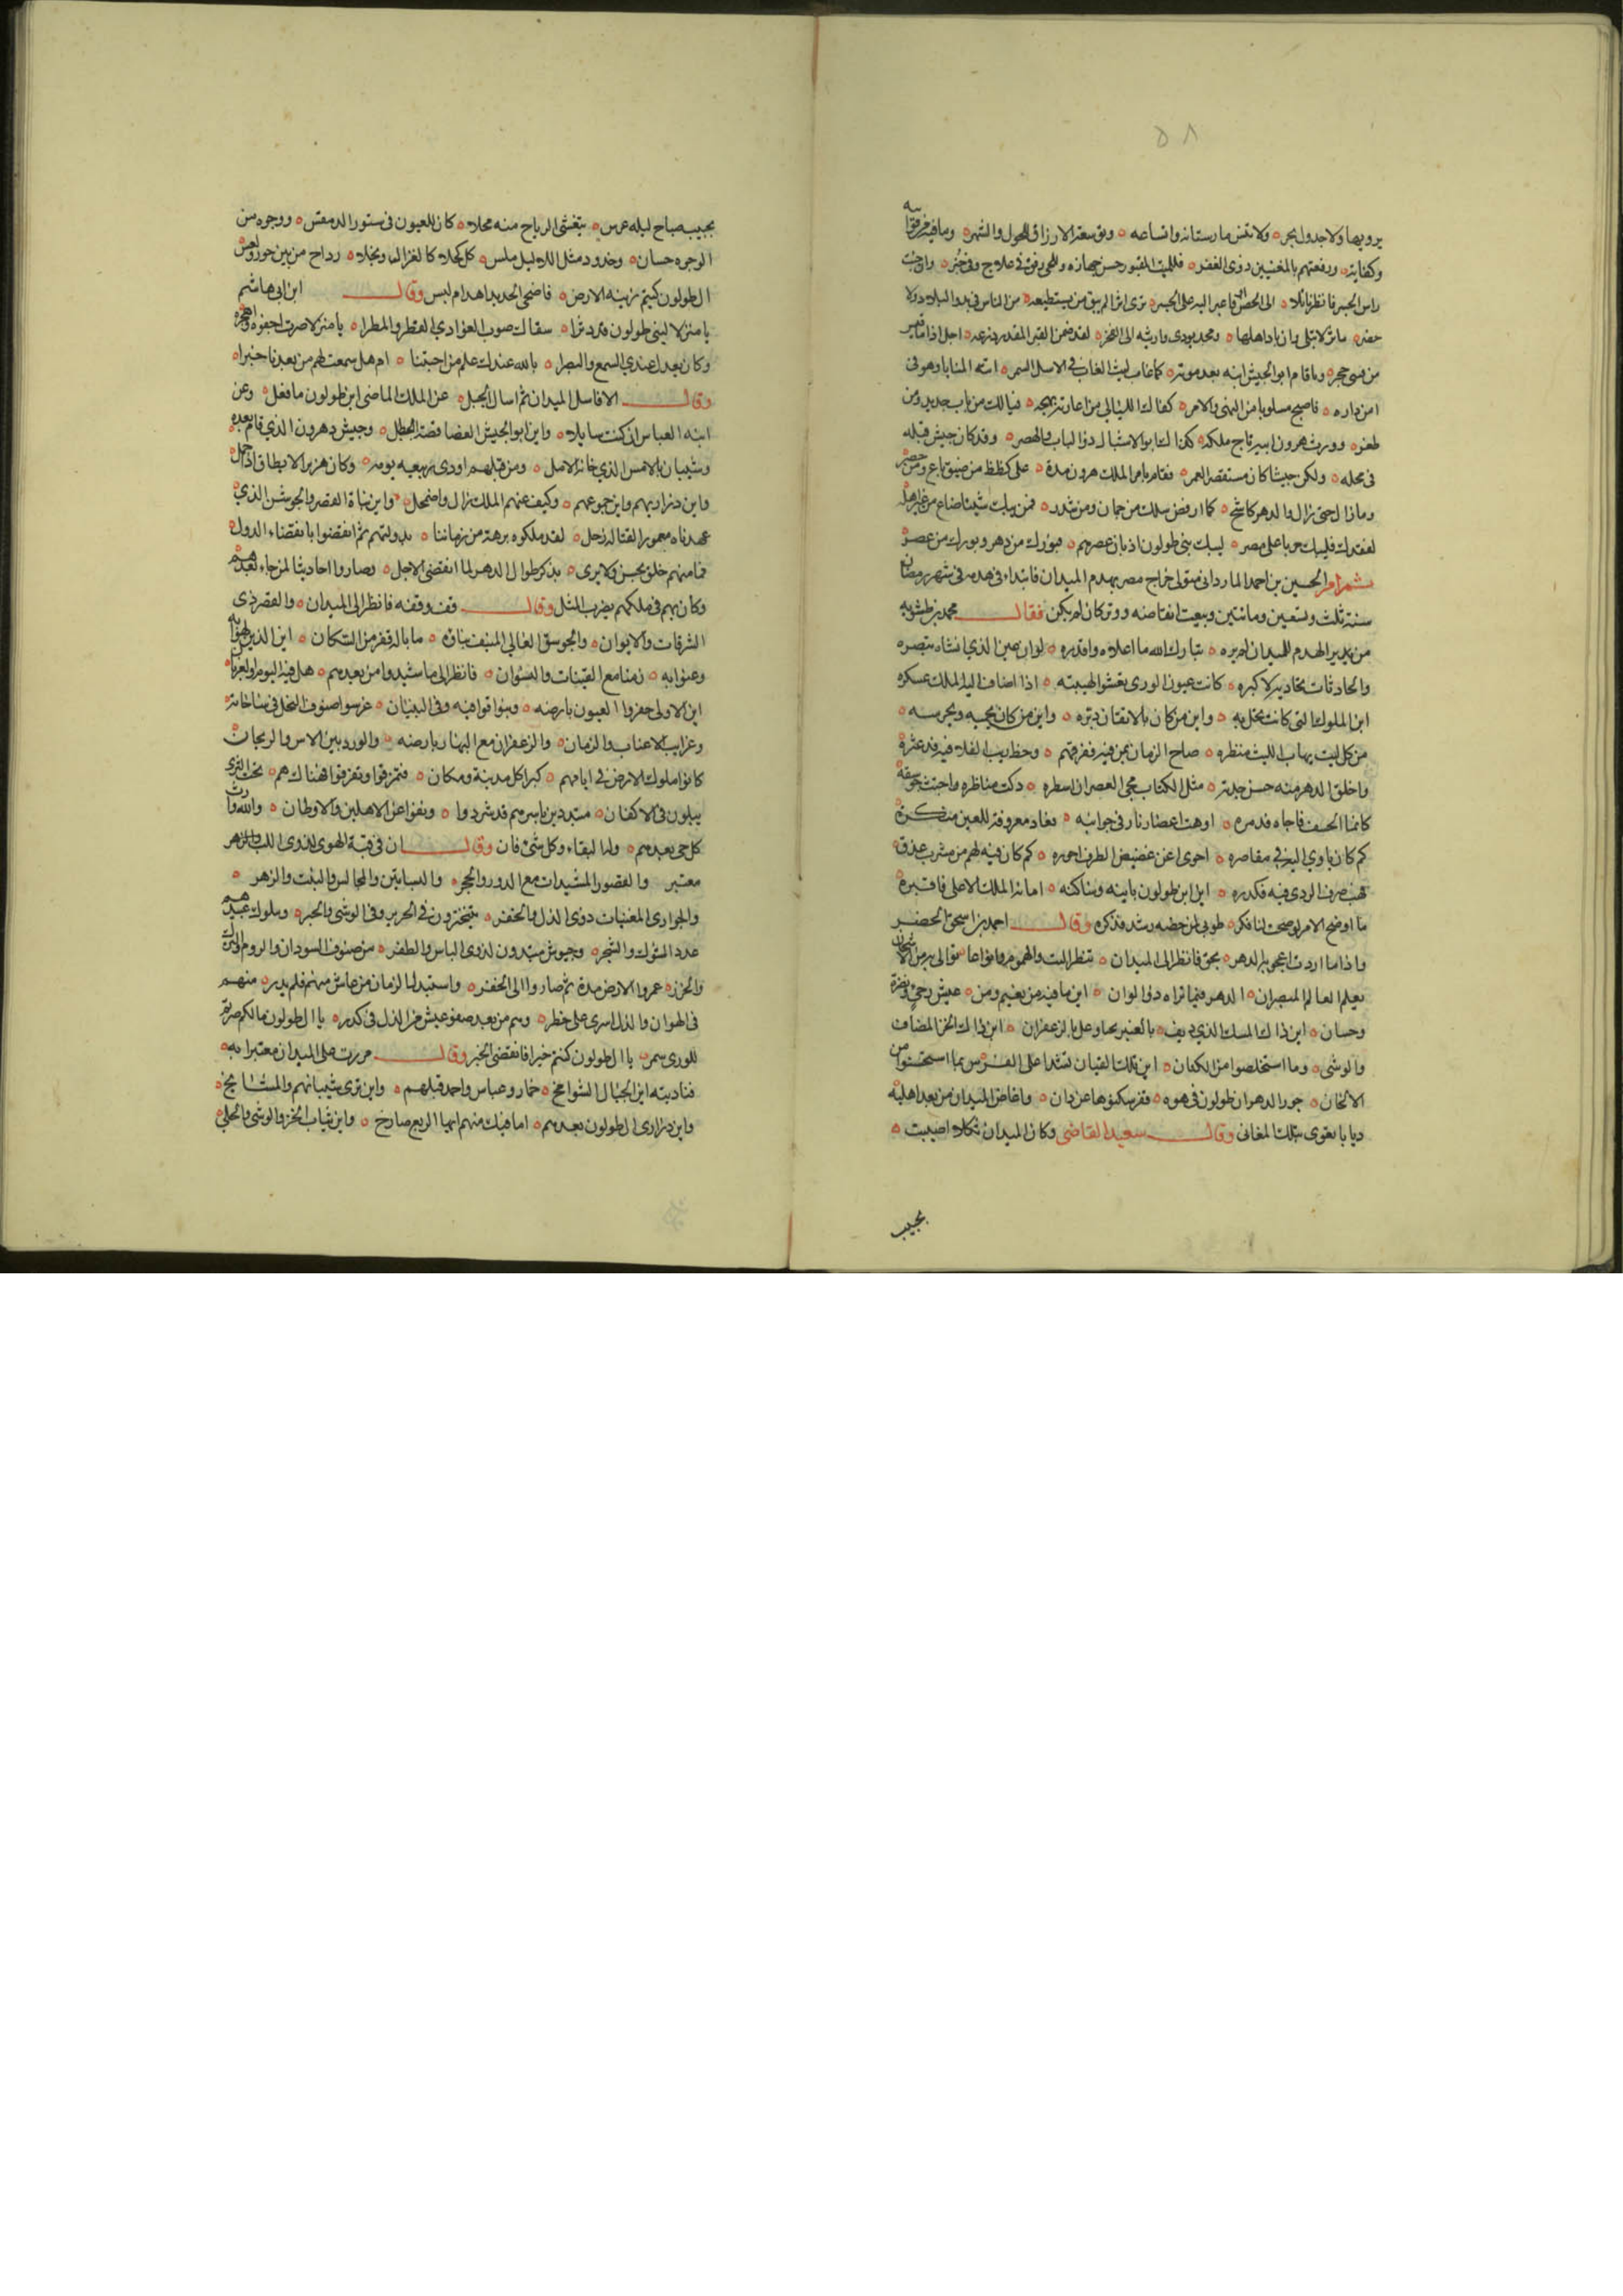 ٥٨
يرويها ولا جدول يجر ه ولا تنس مارستانه واتساعه ه وتوسعة الارزاق للحول والشهر ه وما فيه من قوامه
وكفاته ه ورفعتهم بالمغنيين ذوي الفقر ه فللميت المقبور حسن جهازه وللحي رفق في علاج وفي جبر ه وان جئت
راس الجسر فانظر تاملا ه الى الحصن فاعبر اليه على الجسر ه ترى اثرا لم يبق من يستطيعه ه من الناس في بدو البلاد ولا
حضر ه ماثر لا تبلى وان باد اهلها ه ومجد يودي وارثيه الى الفخر ه لقد ضمن القبر المقدر ذرعه ه اجل اذا ما قيس
من قبتي حجر ه وقام ابو الجيش ابنه بعد موته ه كما غاب ليث الغاب في الاسل السمر ه اتته المنايا وهو في
امن داره ه فاصبح مسلوبا من النهى والامر ه كذاك الليالي من اعارته بهجه ه فيا لك من ناب حديد ومن
ظفر ه وورث هرون ابنه تاج ملكه ه كذاك ابو الاشبال ذو الباب والهصر ه وقد كان جيش قبله
في محله ه ولكن جيشا كان مستقصر العمر ه فقام بامر الملك هرون مدة ه على كظظ من ضيق باع ومن حصر
وما زال حتى زال والدهر كاشح ه كما ارفض سلك من جمان ومن شذر ه فمن يبك شيئا ضاع من غير اهله
لفقدك فليبك حزنا على مصر ه ليبك بني طولون اذ بان عصرهم ه فبورك من دهر وبورك من عصر
ثم امر الحسين بن احمد المارداني متولي خراج مصر بهدم الميدان فابتداء في هدمه في شهر رمضان
سنة ثلث وتسعين ومائتين وبيعت انقاضه ودثر كان لم يكن فقال محمد بن طشويه
من لم ير الهدم للميدان لم يره ه تبارك الله ما اعلاه واقدره ه لوان عين الذي انشاه تبصره
والحادثات تعاديه لاكبره ه كانت عيون الورى تغشوا لهيبته ه اذا اضاف اليه الملك عسكره
اين الملوك التي كانت تحل به ه واين من كان بالاتقان دبره ه واين من كان يحميه ويحرسه ه
من كل ليث يهاب الليث منظره ه صاح الزمان بمن فيه ففرقهم ه وحط ريب البلا فيه فدعثره
واخلق الدهر منه حسن جدته ه مثل الكتاب محى العصران اسطره ه دكت مناظره واجتث جوسقه
كانما الخسف فاجاه فدمره ه اوهب اعصار نار في جوانبه ه فعاد معروفه للعين منكره
كم كان ياوي اليه في مقاصره ه احوى اغن غضيض الطرف احوره ه كم كان فيه لهم من مشرب غدق
فعب صرف الردى فيه فكدره ه اين ابن طولون بانيه وساكنه ه اماته الملك الاعلى فاقبره
ما اوضح الامر لو صحت لنا فكره ه طوبى لمن خصه رشد فذكره وقال احمد بن اسحق الحضر
واذا ما اردت اعجوبة الدهر ه بحق فانظر الى الميدان ه تنظر البث والهموم وانواعا ه توالى به من الاشجان
يعلم العالم المبصر ان ه الدهر فيما تراه ذو الوان ه اين ما فيه من نعيم ومن ه عيش رخي ونضرة
وحسان ه اين ذاك المسك الذي ديف ه بالعنبر بحا وعل بالزعفران ه اين ذاك الخز المضاف
والوشي ه وما استخلصوا من الكتان ه اين تلك القيان تشدا على الفرس بما استحسنوا من
الالحان ه جور الدهر ال طولون في هوه ه فقر مسكنوها عن دان ه واغاض الميدان من بعد اهليه
ديابا تعوي بتلك المغاني وقال سعيد القاضي وكان الميدان ثكلا اصيبت ه
بحبيب
بحبيب صباح ليله عرس ه تتغشى الرياح منه محلا ه كان للعيون في ستور الدمقس ه ووجوه من
الوجوه حسان ه وخدود مثل اللاليل ملس ه كل كحلاء كالغزال ونجلاء ه رداح من بين حور ولعس
ال طولون كنتم زينة الارض ه فاضحى الجديد اهدام لبس وقال ابن ابي هاشم
يا منزلا لبني طولون قد دثرا ه سقاك صوب الغوادي القطر والمطرا ه يا منزلا صرت اجفوه واهجره
وكان يعدل عندي السمع والبصرا ه بالله عندك علم من احبتنا ه ام هل سمعت لهم من بعدنا خبرا ه
وقال الا فاسل الميدان ثم اسال الجبل ه عن الملك الماضي ابن طولون ما فعل ه وعن
ابنه العباس ان كنت سايلا ه واين ابو الجيش الفضا قصة البطل ه وجيش وهرون الذي قام بعده
وشيبان بالامس الذي خانه الامل ه ومن قبلهم اودى ربيعه يومه ه وكان هزبر الا يطاق اذا حمل ه
واين ذراريهم واين جموعهم ه وكيف عنهم الملك زال واضمحل ه واين بناة القصر والجوسق الذي
عهدناه معمورا لقناله زحل ه لقد ملكوه برهة من زماننا ه بدولتهم ثم انقضوا بانقضاء الدول ه
فما منهم خلق يحس ولا يرى ه بذكر طوال الدهر لما انقضى الاجل ه وصاروا احاديثا لمن جاء بعدهم
وكان بهم في ملكهم يضرب المثل وقال قف وقفه فانظر الى الميدان ه والقصر ذي
الشرفات والايوان ه والجوسق العالي المنيف بناؤه ه ما باله قفر من السكان ه اين الذين لهوا به
وعنوا به ه زمنا مع القينات والنسوان ه فانظر الى ما شيدوا من بعدهم ه هل فيه اليوم
اين الاولى حفروا العيون بارضه ه وبنوا قوافيه وفي البنيان ه غرسوا صنوف النخل في ساحاته
وغرايب الاعناب والرمان ه والزعفران مع البهار بارضه ه والورد بين الاس والريحان
كانوا ملوك الارض في ايامهم ه كبرا كل مدينة ومكان ه فتمزقوا وتفرقوا فهناك هم ه تحت الثرى
يبلون في الاكفان ه متبددين باسرهم قد شردوا ه ونفوا عن الاهلين والاوطان ه والله وارث
كل حي بعدهم ه وله البقاء وكل شي فان وقال ان في قبة الهوى لذوي اللب
معتبر والقصور المشيدات مع الدور والحجر ه والبساتين والمجالس والبئت والزهر ه
والجواري المغنيات ذوي الدل والخفر ه يتبخترون في الحرير وفي الوشي والحبر ه وملوك عبيدهم
عدد الشوك والشجر ه وجيوش مسددون لذوي الباس والظفر ه من صنوف السودان والروم والترك
والخزر ه عمروا الارض مدة ثم صاروا الى الحفر ه واستبد الزمان من عاش منهم فلم يدر ه منهم
في الهوان والذل اسرى على خطر ه وهم من بعد صفو عيش من الذل في كدر ه يا ال طولون ما لكم صرتم
للورى سمر ه يا ال طولون كنتم خيرا فانقضى الخبر وقال مررت على الميدان معتبرا به ه
فناديته اين الجبال الشوامخ ه خمارو عباس واحمد قبلهم ه واين ترى شيبانهم والمشايخ ه
واين ذراري ال طولون بعدهم ه اما فيك منهم ايها الربع صارخ ه واين ثياب الخز والوشي والحلي ه